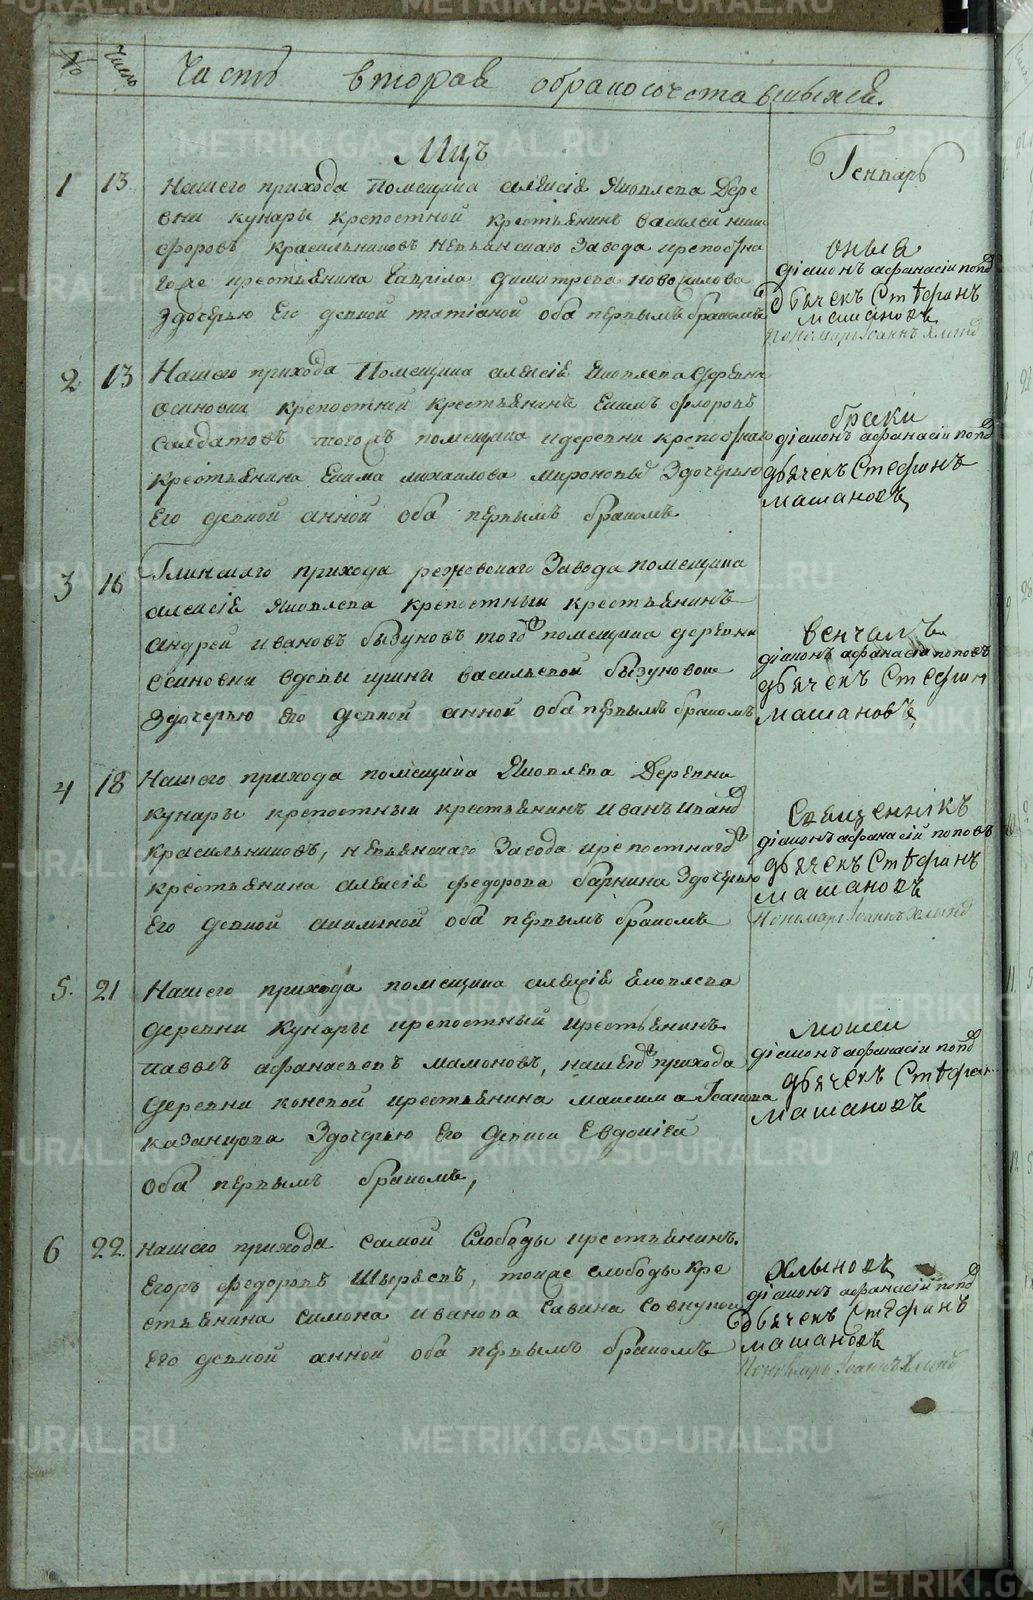 № Число Часть вторая обракосочетавшыхся.
Мцъ Генпарь
1 13 Нашего прихода Помещика алексіе Якоплепа Дере
вни кунары крепостной крестьянинъ василей ники
форовъ красильниковъ Непьянскаго Завода крепостна
гоже крестьянина Гаврила димитрепа новоселова
Здочерью Его депкой татіаной оба перпымъ бракомъ
оныя
діаконъ афанасіи попо
дьячекъ Стефанъ
машановъ
пономарь Іоаннъ хлыно
2 13 Нашего прихода Помещика алексіе Якоплепа деревни
осиновки крепостной крестьянинъ Екимъ флоровъ
салдатовъ тогожъ помещика и деревни крепостнаго
крестьянина Екима михаилова миронова Здочерью
Его депкой анной оба перпымъ бракомъ
браки
діаконъ афанасіи попо
дьячекъ Стефанъ
машановъ
3 16 Глинскаго прихода режевскаго Завода помещика
алексіе Якоплепа крепостный крестьянинъ
андрей ивановъ бызуновъ тогожъ помещика деревни
осиновки вдовы ирины васильевой бызуновой
Здочерью Ею депкой анной оба перпымъ бракомъ
венчалъ
діаконъ афанасіи поповъ
дьячекъ Стефанъ
машановъ
4 18 Нашего прихода помещика Якоплепа Деревни
кунары крепостный крестьянинъ иванъ ивано
красильниковъ, непьянскаго Завода крепостнаго
крестьянина алексіе федорова барнина Здочерью
Его депкой акилиной оба перпымъ бракомъ
Священникъ
діаконъ афанасій поповъ
дьячекъ Стефанъ
машановъ
Пономарь Іоаннъ хлыно
5. 21 Нашего прихода помещика алексіе Якоплепа
деревни кунары крепостный крестьянинъ
павелъ афанасьепъ мамоновъ, нашего прихода
деревни коневой крестьянина максима Іванова
казанцова Здочерью Его депкой Евдокіей
оба перпымъ бракомъ,
мокей
діаконъ афанасіи попо
дьячекъ Стефан
машановъ
6 22 нашего прихода самой Слободы крестьянинъ.
Егоръ федоровъ Шырѣевъ, тоиже слободы кре
стьянина симона иванова Савина Совнукой
Его депкой анной оба перпымъ бракомъ
Хлыновъ
діаконъ афанасіи попо
дьячекъ Стефанъ
машановъ
Пономарь Іоаннъ Хлыно
METRIKI.GASO-URAL.RU